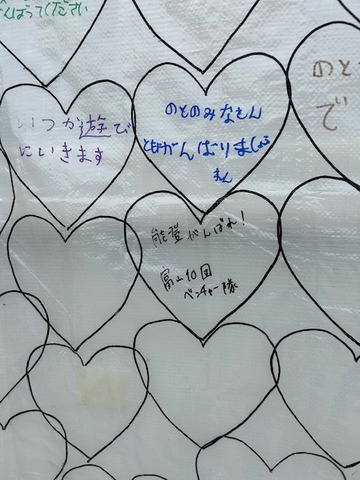 んばってください
いつか遊び
にいきます
のとのみなさん
ともにがんばりましょう
まえ
のと
で
能登がんばれ!
富山10団
ベンチャー隊